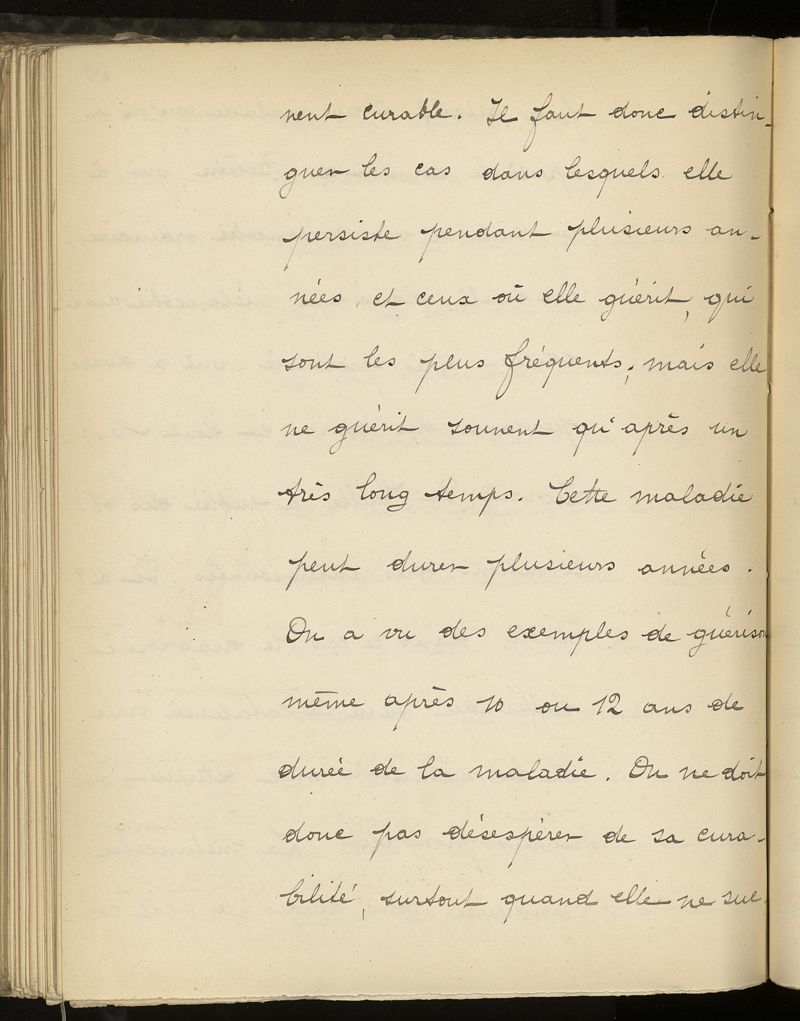 nent curable. Il faut donc distin-
guer les cas dans lesquels elle
persiste pendant plusieurs an-
nées, et ceux où elle guérit, qui
sont les plus fréquents; mais elle
ne guérit souvent qu'après un
très long temps. Cette maladie
peut durer plusieurs années.
On a vu des exemples de guérison
même après 10 ou 12 ans de
durée de la maladie. On ne doit
donc pas désespérer de sa cura-
bilité, surtout quand elle ne suc-